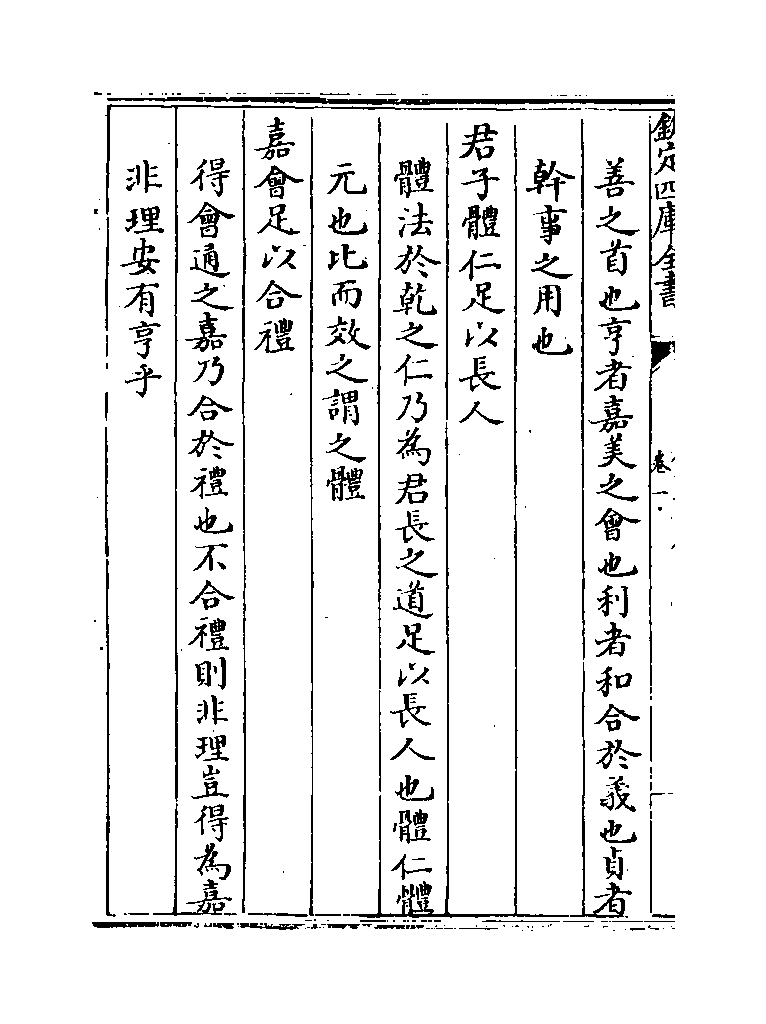 欽定四庫全書
卷一
善之首也亨者嘉美之會也利者和合於義也貞者
幹事之用也
君子體仁足以長人
體法於乾之仁乃為君長之道足以長人也體仁體
元也比而效之謂之體
嘉會足以合禮
得會通之嘉乃合於禮也不合禮則非理豈得為嘉
非理安有亨乎